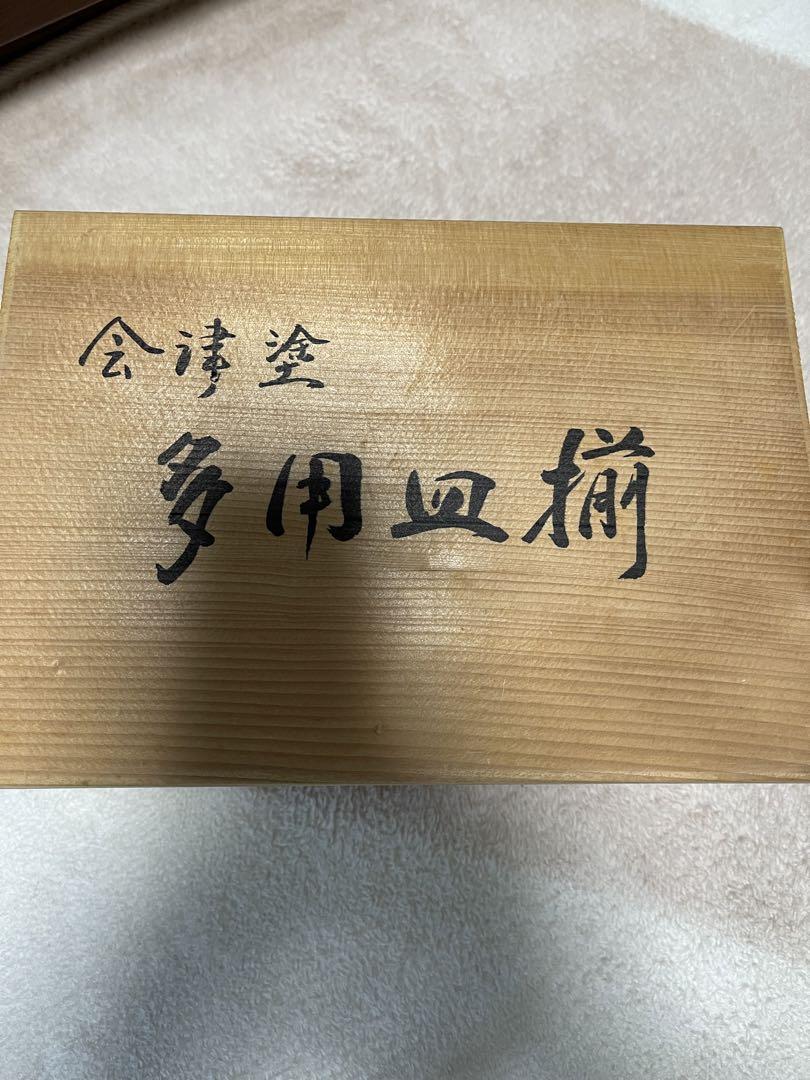 会津塗
多用皿揃